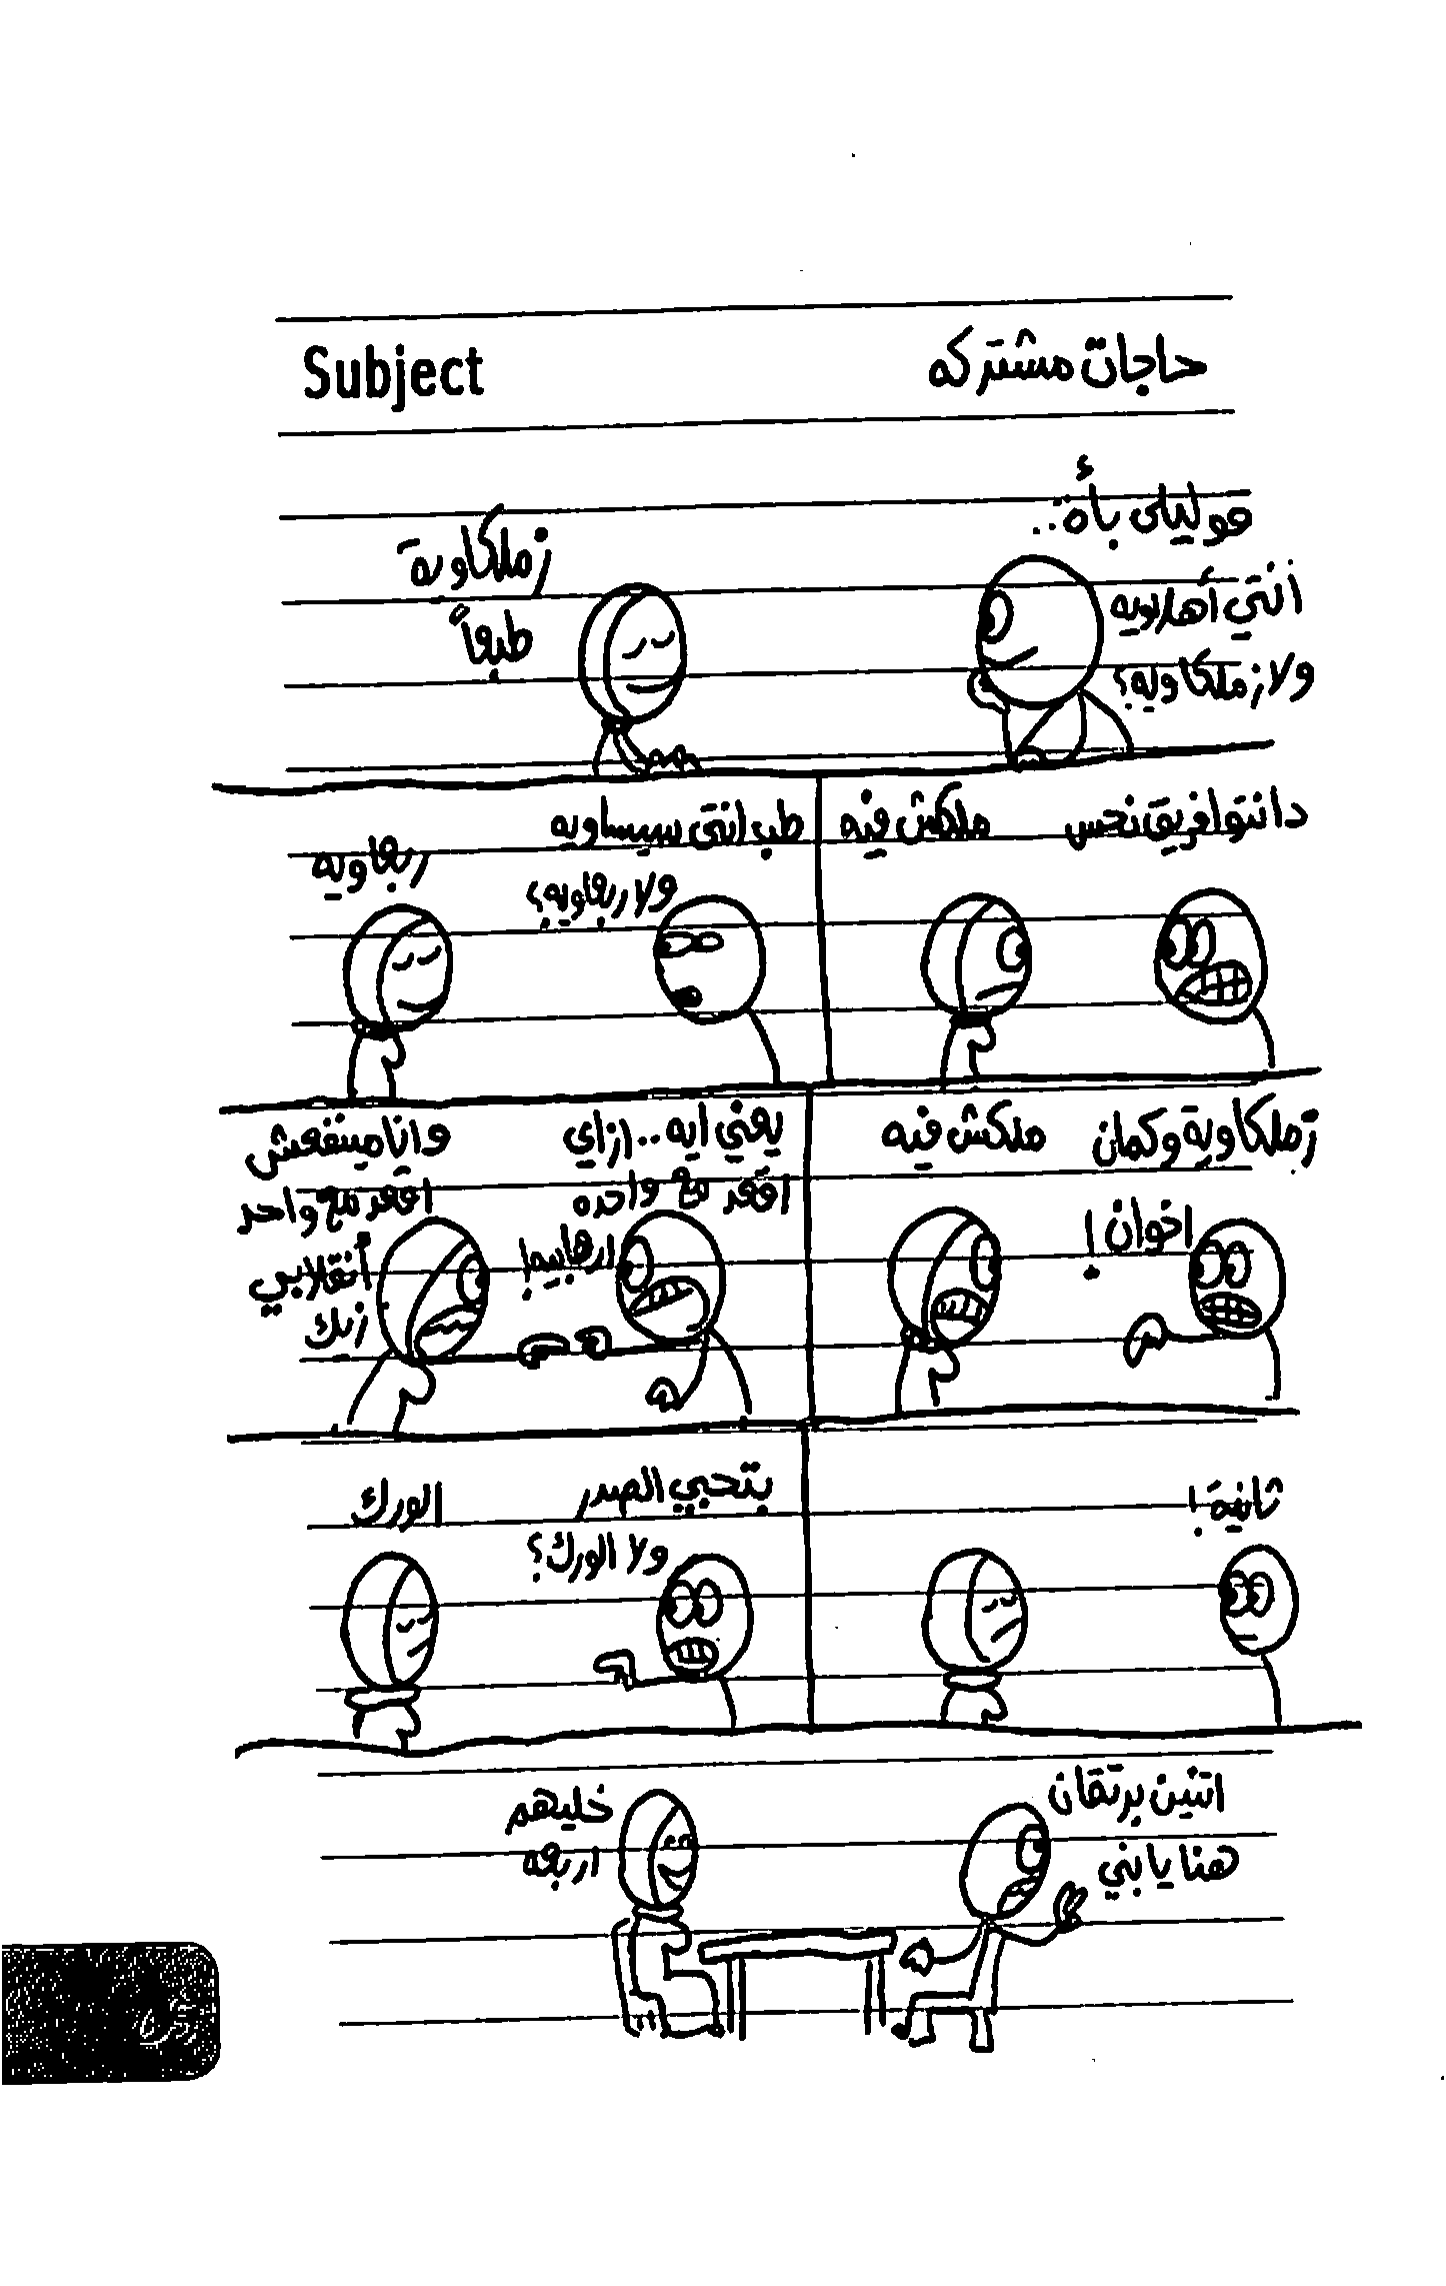 Subject
حاجات مشتركه
قوليلى بأة..
انتي أهلاويه
ولا زملكاويه؟
زملكاوية
طبعاً
دا انتوا فريق نحس
ملكش فيه
طب انتي سيساويه
ولا ربعاويه؟
ربعاويه
زملكاوية وكمان
اخوان!
ملكش فيه
يعني ايه.. ازاي
اقعد مع واحده
ارهابيه!
وانا مينفعش
اقعد مع واحد
أنقلابي
زيك
ثانية!
بتحبي الصدر
ولا الورك؟
الورك
اتنين برتقان
هنا يا بني
خليهم
اربعه